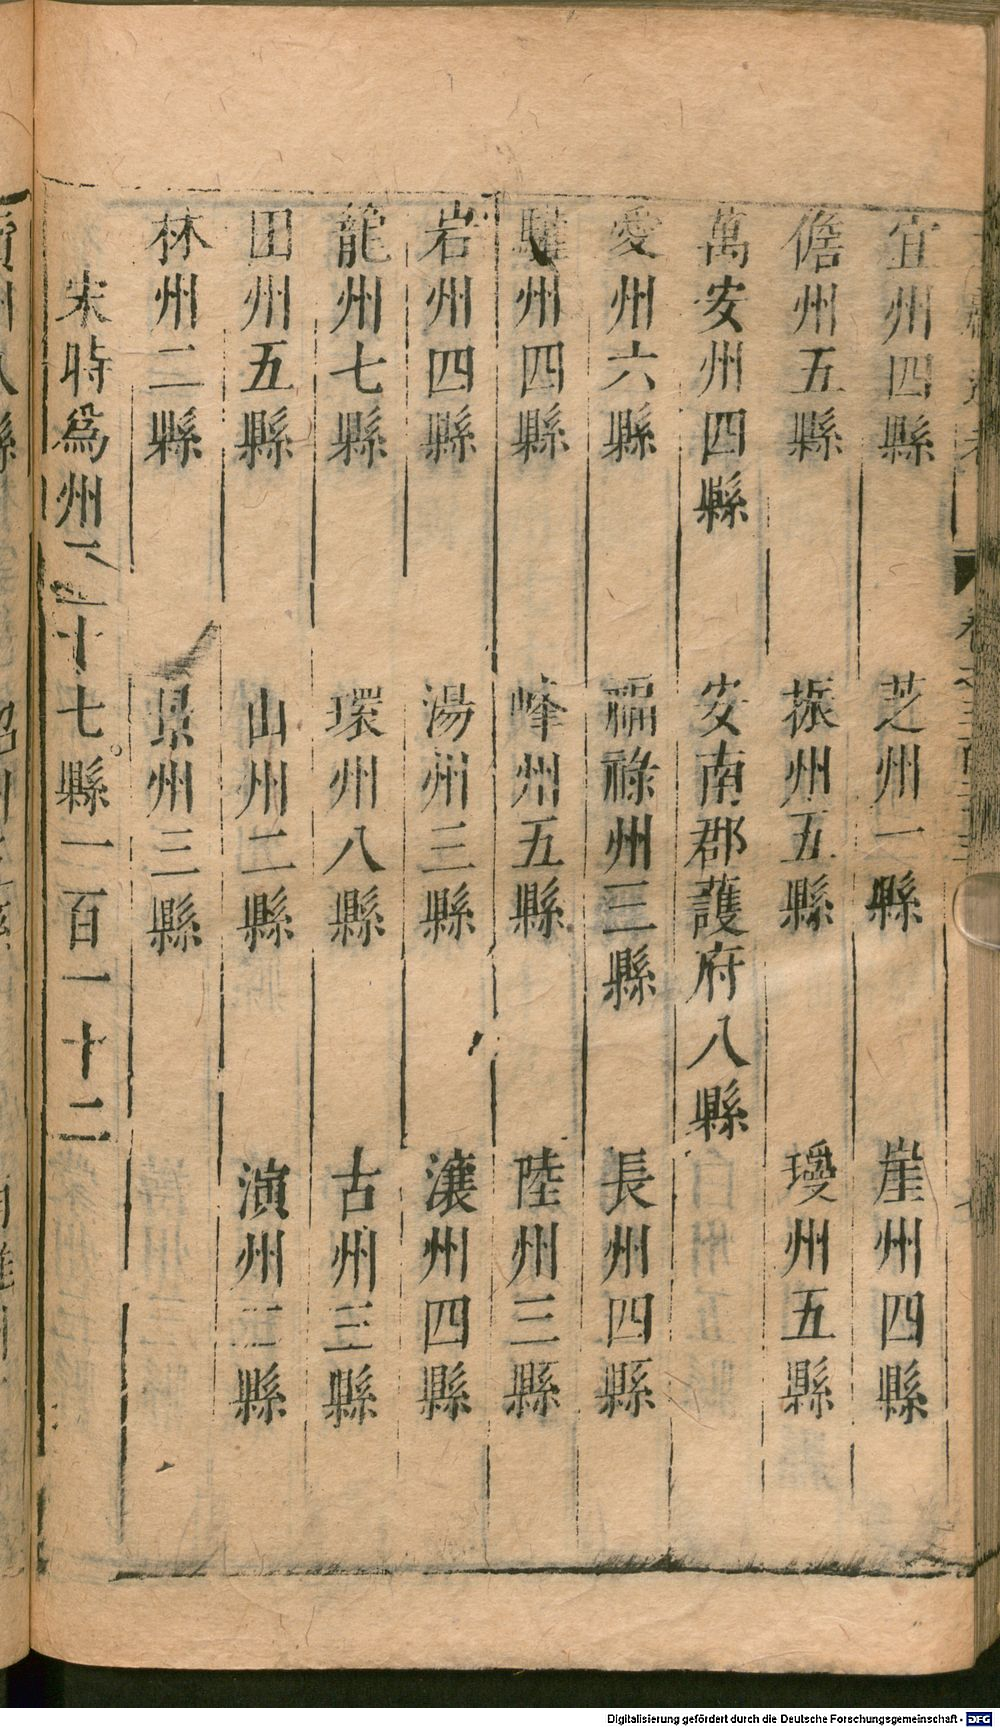 宜州四縣 芝州一縣 崖州四縣
儋州五縣 振州五縣 瓊州五縣
萬安州四縣 安南郡護府八縣
愛州六縣 福祿州三縣 長州四縣
驩州四縣 峰州五縣 陸州三縣
岩州四縣 湯州三縣 瀼州四縣
籠州七縣 環州八縣 古州三縣
田州五縣 山州二縣 演州三縣
林州二縣 景州三縣
宋時爲州二十七縣一百一十二
Digitalisierung gefördert durch die Deutsche Forschungsgemeinschaft - DFG